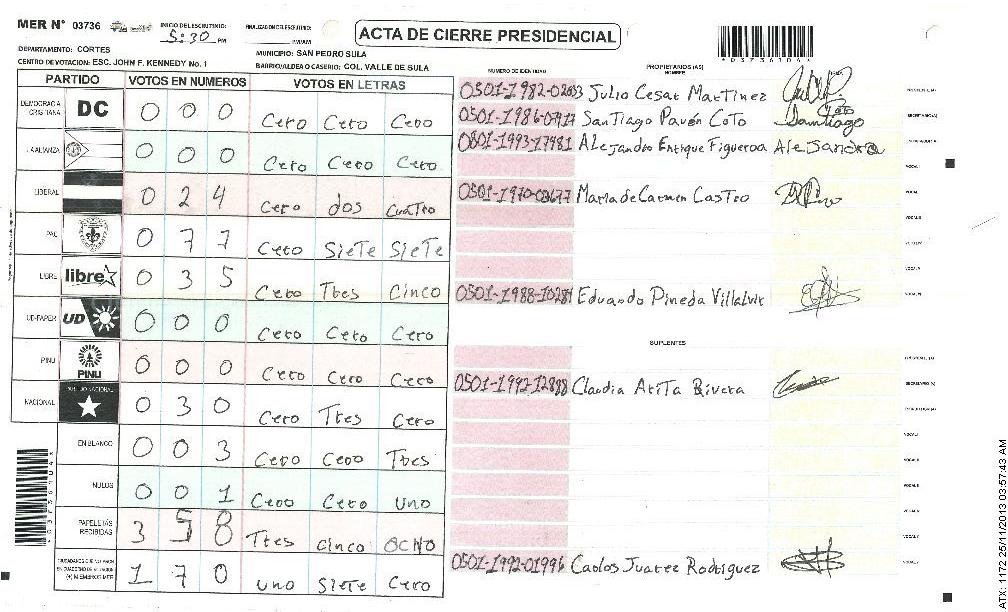 MER N° 03736
INICIO DEL ESCRUTINIO: 5:30 PM
FINALIZACION DEL ESCRUTINIO: PM/AM
ACTA DE CIERRE PRESIDENCIAL
*03736104*
DEPARTAMENTO: CORTES
MUNICIPIO: SAN PEDRO SULA
CENTRO DE VOTACION: ESC. JOHN F. KENNEDY No. 1
BARRIO/ALDEA O CASERIO: COL. VALLE DE SULA
PARTIDO VOTOS EN NUMEROS VOTOS EN LETRAS
DEMOCRACIA CRISTIANA DC 0 0 0 Cero Cero Cero
LA ALIANZA 0 0 0 Cero Cero Cero
LIBERAL 0 2 4 Cero dos Cuatro
PAC 0 7 7 Cero Siete Siete
LIBRE libre 0 3 5 Cero Tres Cinco
UD-FAPER UD 0 0 0 Cero Cero Cero
PINU PINU 0 0 0 Cero Cero Cero
NACIONAL PARTIDO NACIONAL 0 3 0 Cero Tres Cero
EN BLANCO 0 0 3 Cero Cero Tres
NULOS 0 0 1 Cero Cero uno
PAPELETAS RECIBIDAS 3 5 8 Tres cinco ocho
CIUDADANOS QUE VOTARON EN CUADERNO DE VOTACION (+) MIEMBROS MER 1 7 0 uno siete cero
NUMERO DE IDENTIDAD
PROPIETARIOS (AS)
NOMBRE
Julio Cesar Martinez
PRESIDENTE (A)
Santiago Pavón Coto Santiago Coto
SECRETARIO (A)
0801-1993-17481 Alejandro Enrique Figueroa Alejandro
ESCRUTADOR (A)
VOCAL I
Maria de Carmen Castro
0501-1988-10289 Eduardo Pineda
SUPLENTES
0501-1992-12888 Claudia Arita Rivera
SECRETARIO (A)
0501-1992-01996 Carlos Juarez Rodriguez
ATX: 1172 25/11/2013 03:57:43 AM